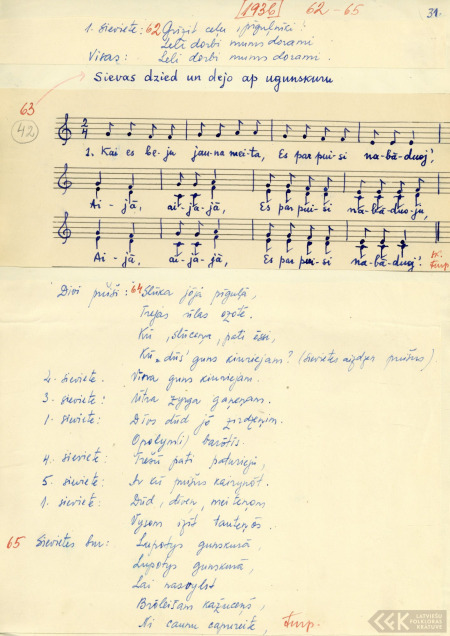 [1936] 62-65 31.
1. sieviete: 62 Grīzit ceļu, pīguļnīki!
Leli dorbi mums dorami
Visas: Leli dorbi mums dorami.
Sievas dzied un dejo ap ugunskuru
63
42
1. Kai es be-ju jau-na mei-ta, Es par pui-si na-bā-duoj!
Ai-jā, ai-jā-jā, Es par pui-si na-bā-duo-ju,
Ai-jā, ai-jā-jā, Es par pui-si na-bā-duoj!
turp.
Divi puiši: 64 Slūka jōja pīguļā,
Trejas ūlas
Kū, pati ēssi,
Kū dūs guns kiuriejam? (Sievietes aizdzen puišus)
2. sieviete. Vīna guns kiuriejam.
3. sieviete: Ūtra zyrgu gaņeņam.
1. sieviete: Divs dūd jō zirdzeņim.
barōtis.
4. sieviete: Trešū pati
5. sieviete: Ar kū puišus kairynōt.
1. sieviete: Dūd, diveņ, meiteņom
Vysom izīt tautenōs.
65 Sievietes kur: Lupotys gunskurā,
Lupotys gunskurā,
Lai nasoylst
Brōleišam kažuceņš,
Ni caunu capureite, turp.
LFK
LATVIEŠU
FOLKLORAS
KRĀTUVE